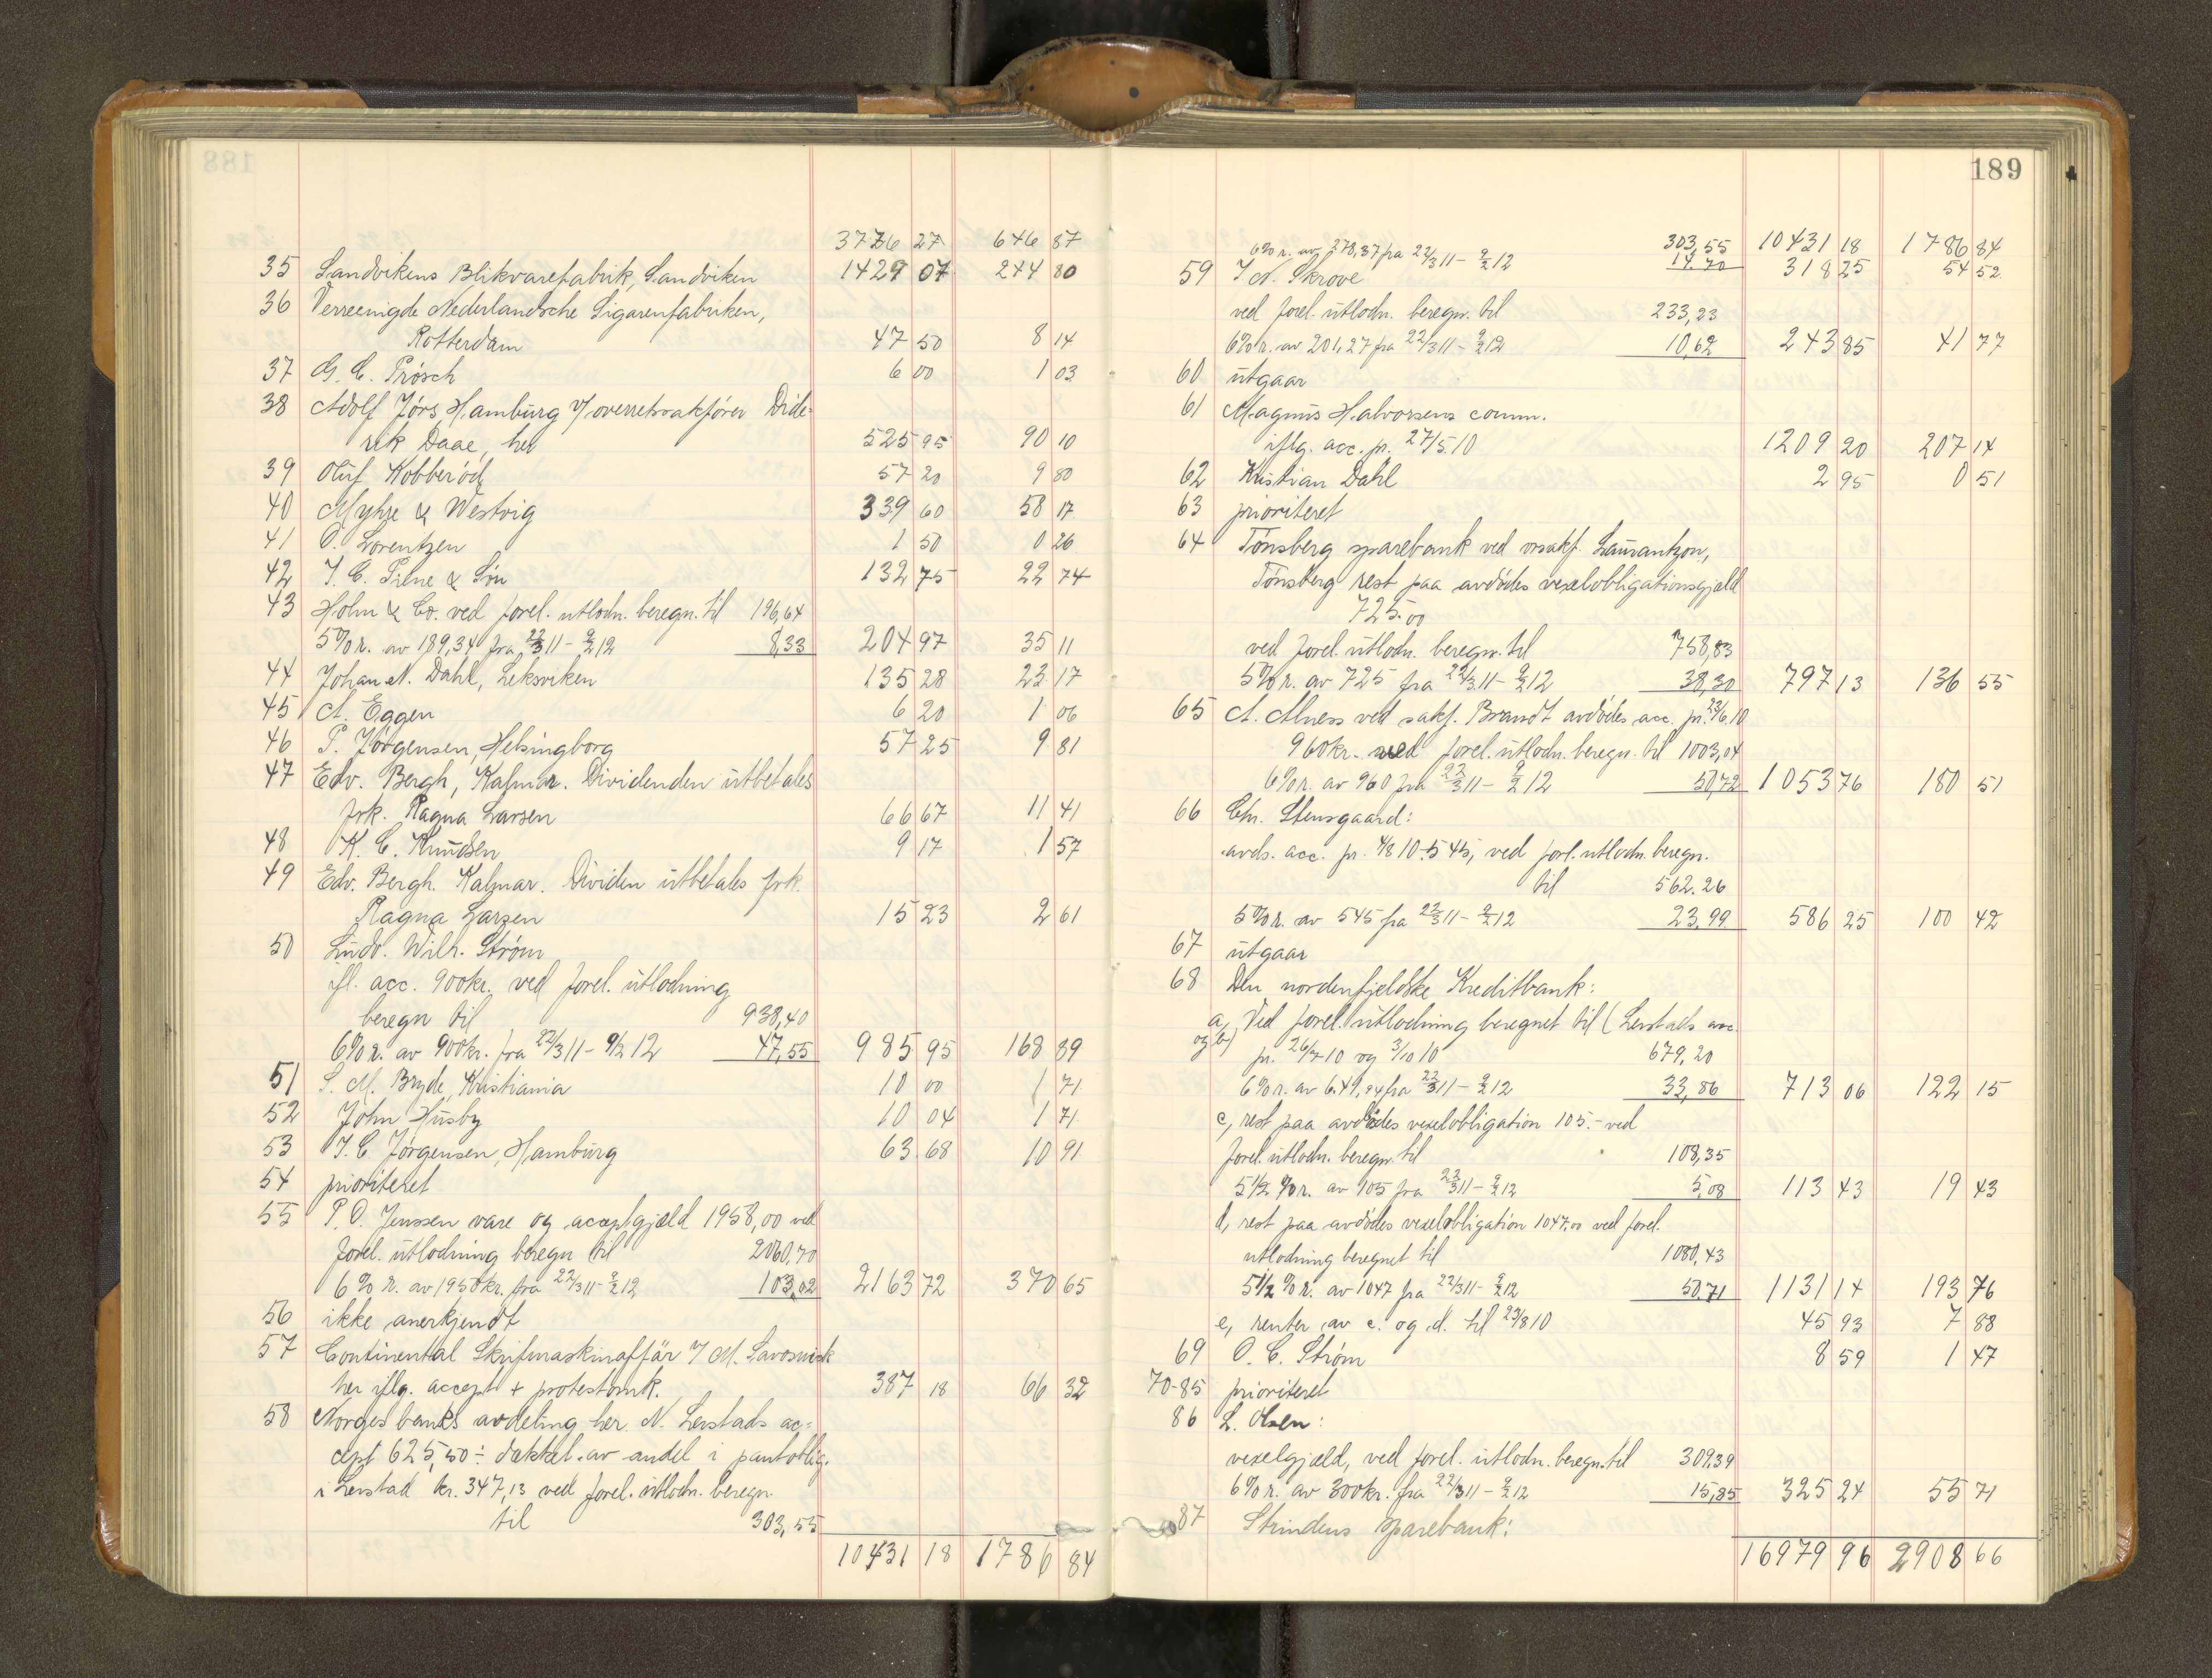 188
3776 27 646 87
35 Sandvikens Blikvarefabrik, Sandviken 1429 07 244 80
36 Verreenigde Nederlandsche Sigarenfabriken,
Rotterdam 47 50 8 14
37 G. C. Prösch 6 00 1 03
38 Adolf Jörs, Hamburg v/ overretssakförer Dide-
rik Daae, her 525 95 90 10
39 Oluf Kobberöd 57 20 9 80
40 Myhre & Westvig 339 60 58 17
41 O. Lorentzen 1 50 0 26
42 J. C. Pilne & Sön 132 75 22 74
43 Holm & Co. ved forel. utlodn. beregn. til 196,64
5% r. av 189,34 fra 22/3 11 - 9/2 12 8,33 204 97 35 11
44 Johan N. Dahl, Leksviken 135 28 23 17
45 A. Eggen 6 20 1 06
46 P. Jörgensen, Helsingborg 57 25 9 81
47 Edv. Bergh, Kalmar. Dividenden utbetales
frk. Ragna Larsen 66 67 11 41
48 K. C. Knudsen 9 17 1 57
49 Edv. Bergh. Kalmar. Dividen utbetales frk.
Ragna Larsen 15 23 2 61
50 Ludv. Wilh. Ström
ifl. acc. 900kr. ved forel. utlodning
beregn til 938,40
6% r. av 900kr. fra 22/3 11 - 9/2 12 47,55 985 95 168 89
51 S. M. Bryde, Kristiania 10 00 1 71
52 John Husby 10 04 1 71
53 J. C. Jörgensen, Hamburg 63 68 10 91
54 prioriteret
55 P. O. Jenssen vare og acceptgjæld 1958,00 ved
forel. utlodning beregn til 2060,70
6% r. av 1950kr. fra 22/3 11 - 9/2 12 103,02 2163 72 370 65
56 ikke anerkjendt
57 Continental Skrifmaskinaffär v/ M. Savosnick
her iflg. accept + protestomk. 387 18 66 32
58 Norges banks avdeling her N. Lerstads ac-
cept 625,50 ÷ dækket av andel i pantoblig.
i Lerstad kr. 347,13 ved forel. utlodn. beregn.
til 303,55
10431 18 1786 84
189
303,55 10431 18 1786 84
6% r. av 278,37 fra 22/3 11 - 9/2 12 14.70 318 25 54 52
59 J. N. Skrove
ved forel. utlodn. beregn. til 233,23
6% r. av 201,27 fra 22/3 11 - 9/2 12 10,62 243 85 41 77
60 utgaar
61 Magnus Halvorsens comm.
iflg. acc. pr. 27/5.10 1209 20 207 14
62 Kristian Dahl 2 95 0 51
63 prioriteret
64 Tönsberg sparebank ved orsakf. Laurantzon,
Tönsberg rest paa avdödes vexelobligationsgjæld
725.00
ved forel. utlodn. beregn. til 758,83
5% r. av 725 fra 22/3 11 - 9/2 12 38,30 797 13 136 55
65 A. Alness ved sakf. Brandt avdödes acc. pr. 23/6.10
960kr. ved forel. utlodn. beregn. til 1003,04
6% r. av 960 fra 22/3 11 - 9/2 12 50,72 1053 76 180 51
66 Chr. Stensgaard:
avds. acc. pr. 4/8 10: 545, ved forl. utlodn. beregn.
til 562.26
5% r. av 545 fra 22/3 11 - 9/2 12 23,99 586 25 100 42
67 utgaar
68 Den nordenfjeldske Kreditbank:
a, og b) Ved forel. utlodning beregnet til (Lerstads acc.
pr. 26/7 10 og 3/10 10 679,20
6% r. av 641,94 fra 22/3 11 - 9/2 12 33,86 713 06 122 15
c, rest paa avdödes vexelobligation 105.- ved
forel. utlodn. beregn. til 108,35
5 1/2 % r. av 105 fra 22/3 11 - 9/2 12 5,08 113 43 19 43
d, rest paa avdödes vexelobligation 1047.00 ved forel.
utlodning beregnet til 1080,43
5 1/2 % r. av 1047 fra 22/3 11 - 9/2 12 50,71 1131 14 193 76
e, renter av c. og d. til 23/8 10 45 93 7 88
69 O. C. Ström 8 59 1 47
70-85 prioriteret
86 L. Olsen:
vexelgjæld, ved forel. utlodn. beregn. til 309.39
6% r. av 300kr. fra 22/3 11 - 9/2 12 15,85 325 24 55 71
87 Strindens sparebank:
16979 96 2908 66